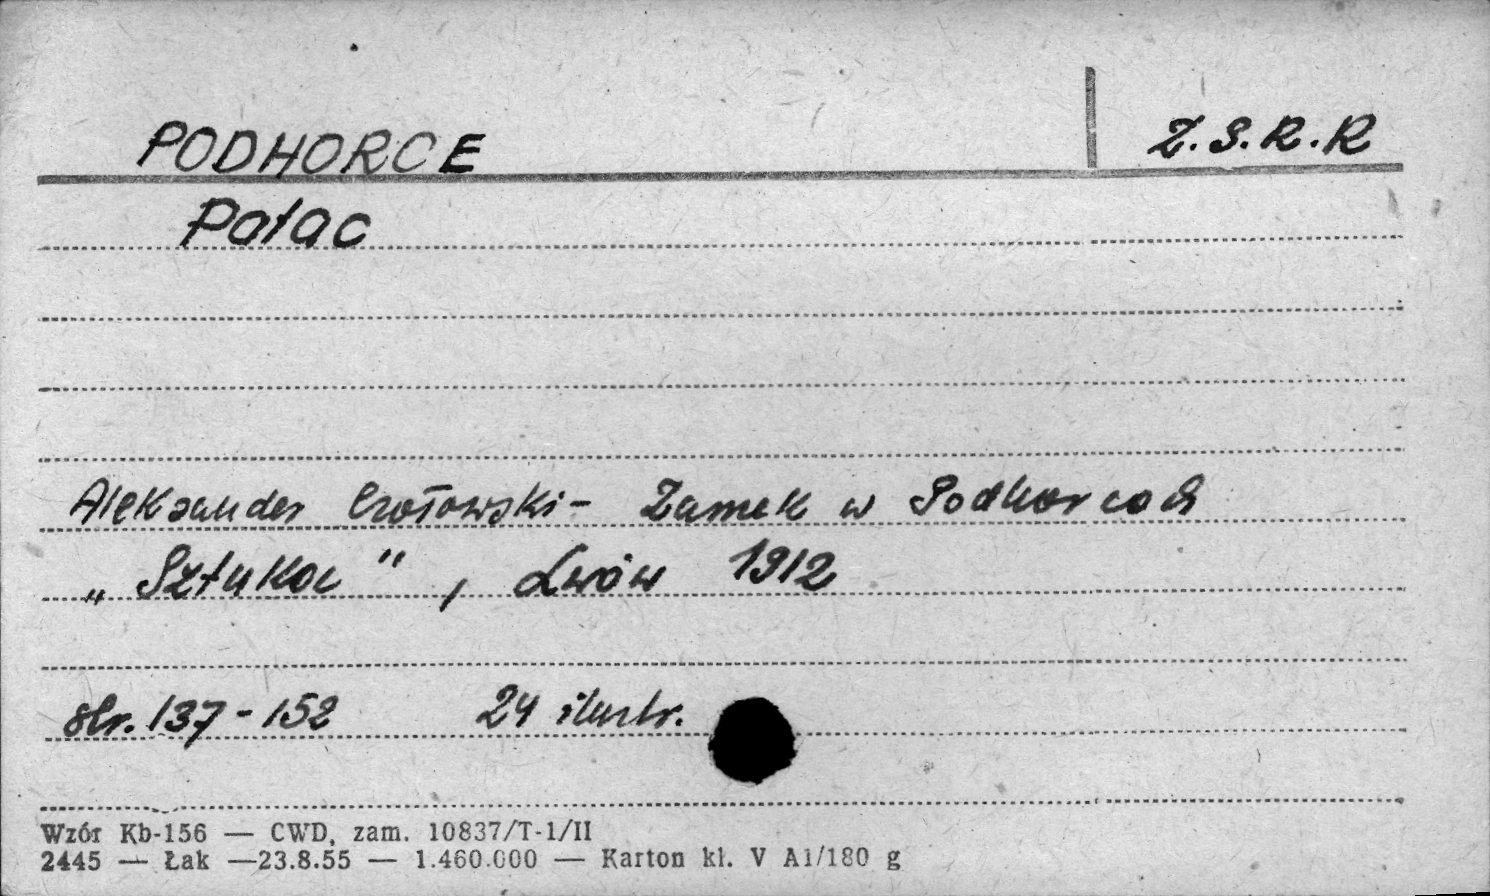 PODHORCE
Z.S.R.R
Pałac
Aleksander Czołowski - Zamek w Podhorcach
„Sztuka", Lwów 1912
str. 137-152 24 ilustr.
Wzór Kb-156 — CWD, zam. 10837/T-1/II
2445 — Łak —23.8.55 — 1.460.000 — Karton kl. V A1/180 g